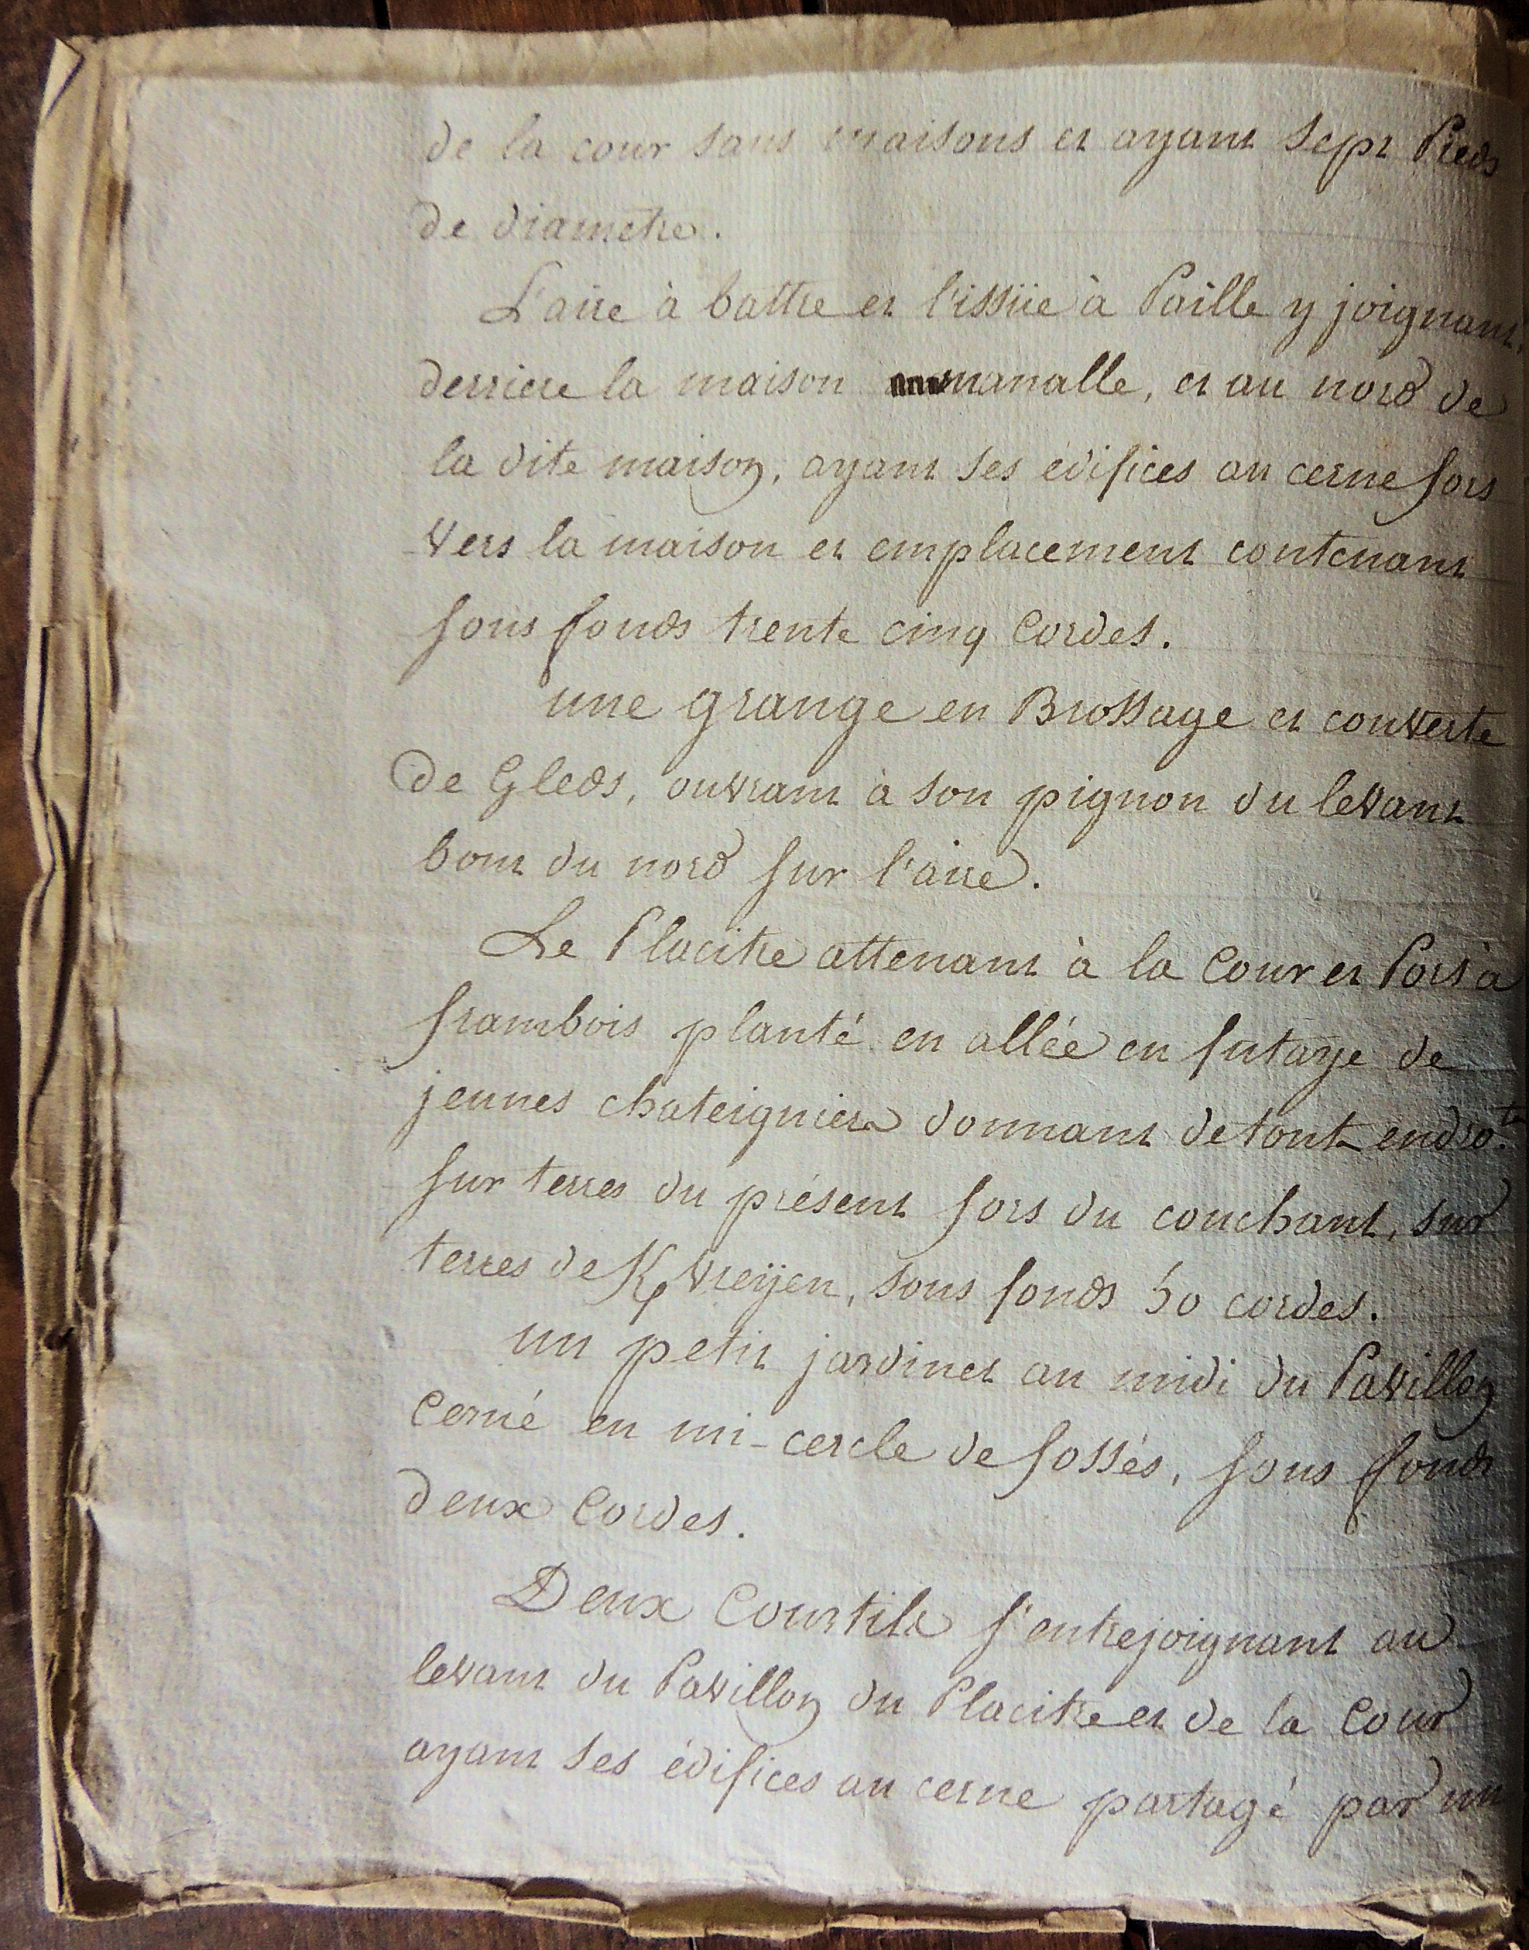 de la cour sans maisons et ayant sept Pieds
de diametre.
L'aire à battre et l'issüe à Paille y joignant,
derriere la maison manalle, et au nord de
la dite maison, ayant ses édifices au cerne fors
vers la maison et emplacement contenant
sous fonds trente cinq Cordes.
une grange en Brossage et couverte
de Gleds, ouvrant à son pignon du levant
bout du nord sur l'aire.
Le Placitre attenant à la Cour et Pors à
frambois planté en allée en futaye de
jeunes chateigniers donnant de tout endro.ts
sur terres du présent fors du couchant, sur
terres de K/vreÿen, sous fonds 50 cordes.
un petit jardinet au midi du Pavillon
Cerné en mi-cercle de fossés, sous fonds
deux Cordes.
Deux Courtils s'entrejoignant au
levant du Pavillon du Placitre et de la Cour
ayant ses édifices au cerne partagé par un